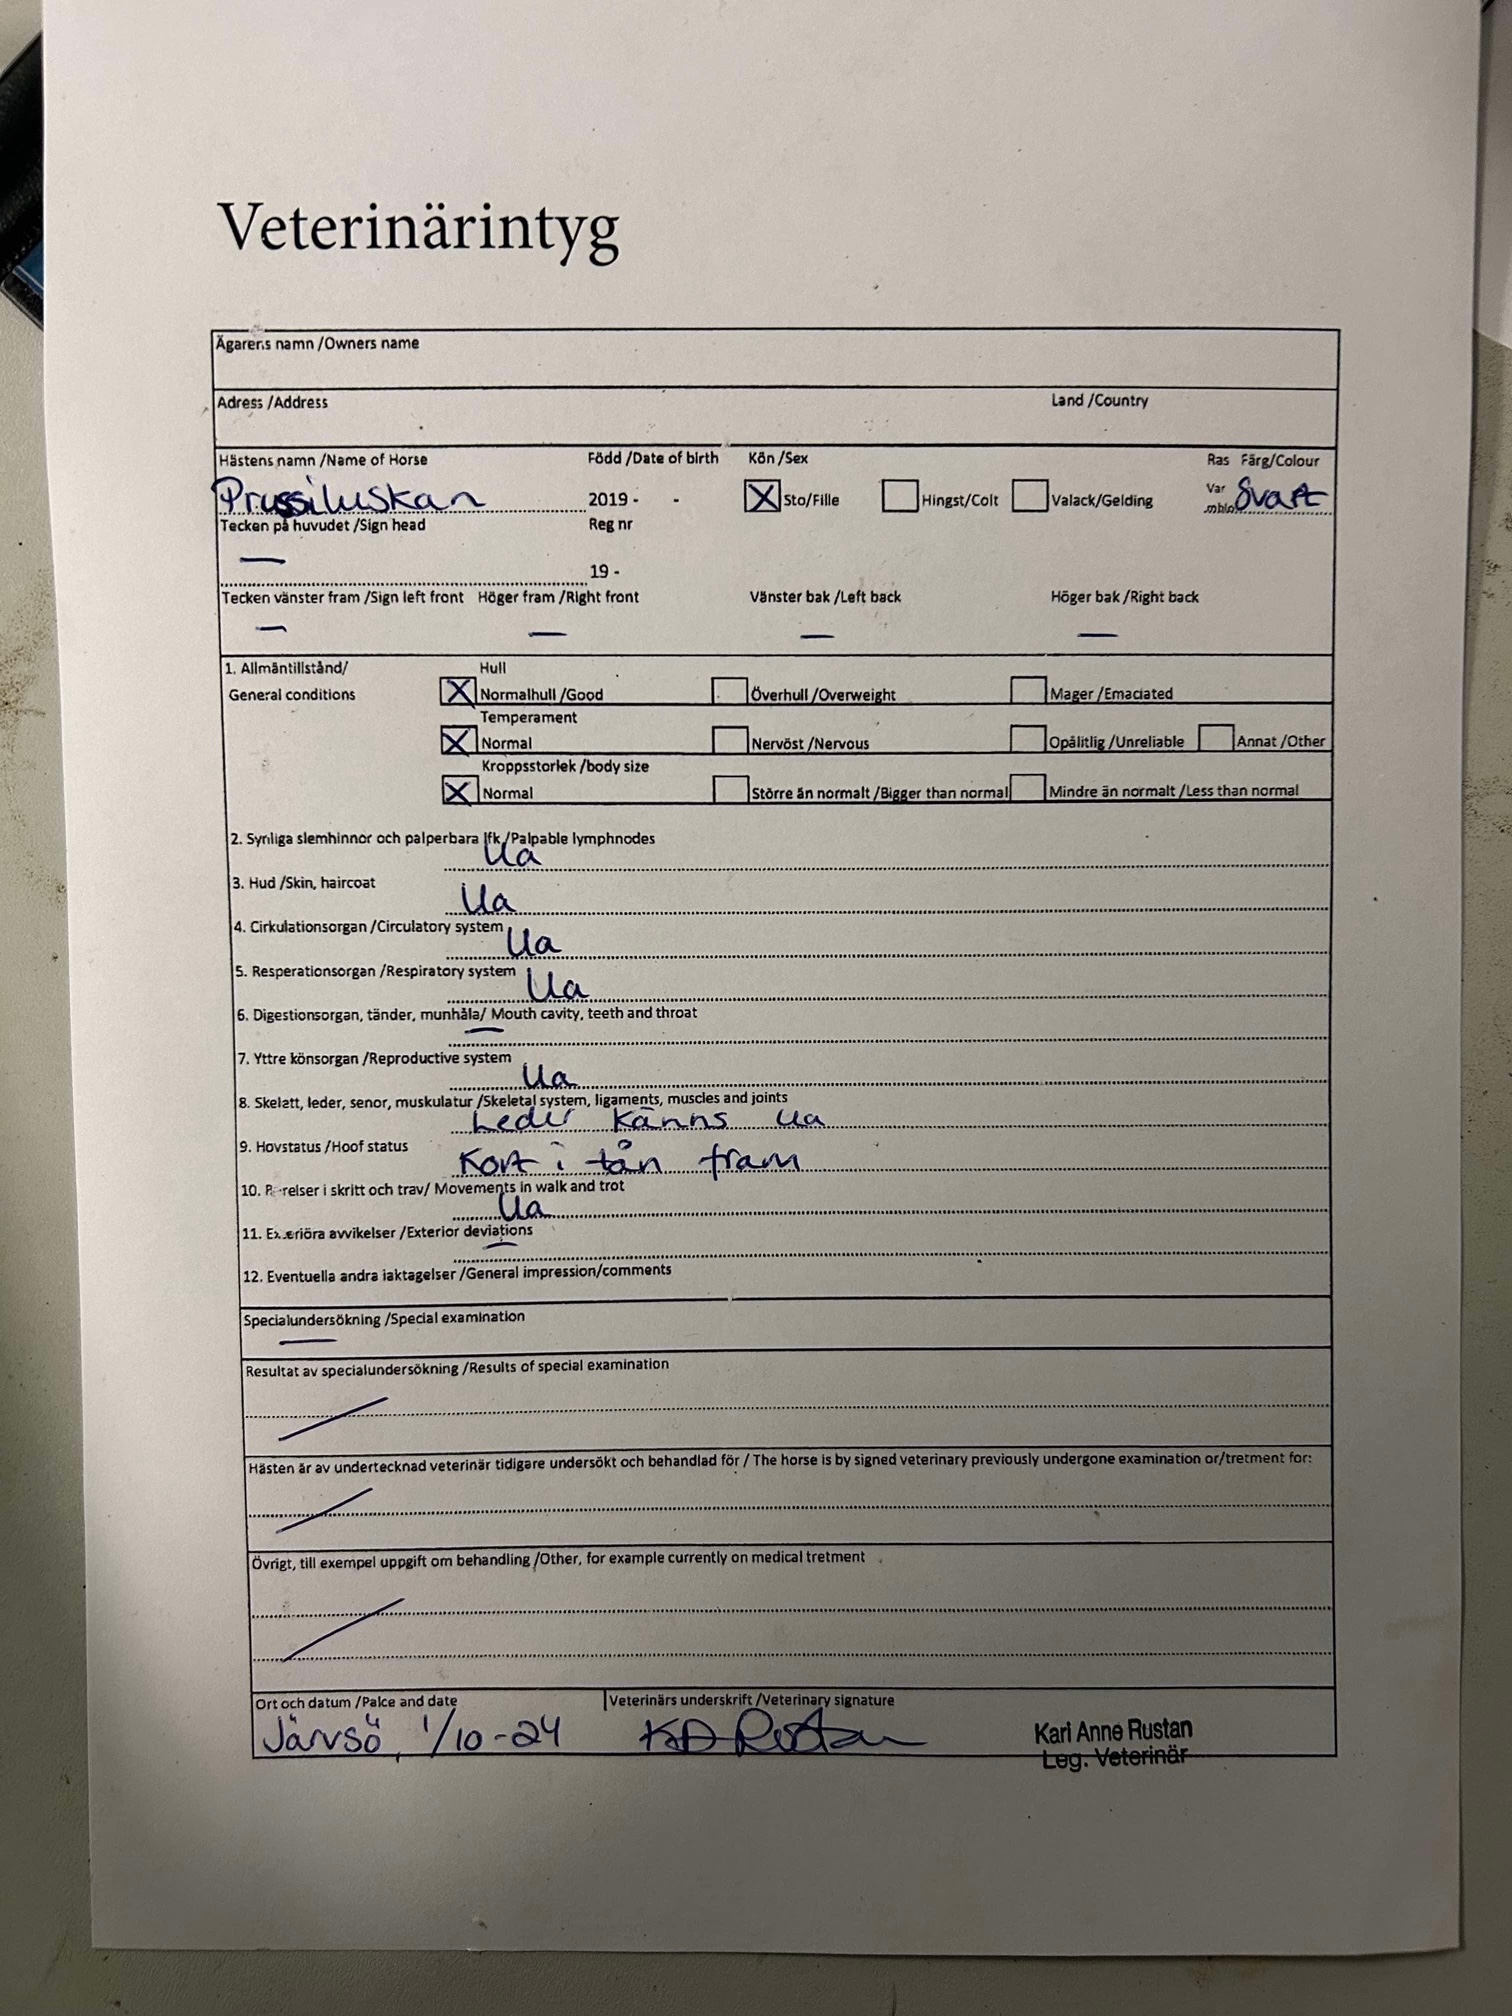 Veterinärintyg
Ägarens namn /Owners name
Adress /Address Land /Country
Hästens namn /Name of Horse Född /Date of birth Kön /Sex Ras Färg/Colour
Prussiluskan 2019 - - X Sto/Fille Hingst/Colt Valack/Gelding Var Svart
Tecken på huvudet /Sign head Reg nr
—
19 -
Tecken vänster fram /Sign left front Höger fram /Right front Vänster bak /Left back Höger bak /Right back
— — — —
1. Allmäntillstånd/ Hull
General conditions X Normalhull /Good Överhull /Overweight Mager /Emaciated
Temperament
X Normal Nervöst /Nervous Opålitlig /Unreliable Annat /Other
Kroppsstorlek /body size
X Normal Större än normalt /Bigger than normal Mindre än normalt /Less than normal
2. Synliga slemhinnor och palperbara lfk /Palpable lymphnodes
Ua
3. Hud /Skin, haircoat
Ua
4. Cirkulationsorgan /Circulatory system
Ua
5. Resperationsorgan /Respiratory system
Ua
6. Digestionsorgan, tänder, munhåla/ Mouth cavity, teeth and throat
—
7. Yttre könsorgan /Reproductive system
Ua
8. Skelett, leder, senor, muskulatur /Skeletal system, ligaments, muscles and joints
Leder känns ua
9. Hovstatus /Hoof status
Kort i tån fram
10. Rörelser i skritt och trav/ Movements in walk and trot
Ua
11. Exteriöra avvikelser /Exterior deviations
—
12. Eventuella andra iaktagelser /General impression/comments
Specialundersökning /Special examination
—
Resultat av specialundersökning /Results of special examination
Hästen är av undertecknad veterinär tidigare undersökt och behandlad för / The horse is by signed veterinary previously undergone examination or/tretment for:
Övrigt, till exempel uppgift om behandling /Other, for example currently on medical tretment
Ort och datum /Palce and date Veterinärs underskrift /Veterinary signature
Järvsö, 1/10-24 KA Rustan Kari Anne Rustan
Leg. Veterinär